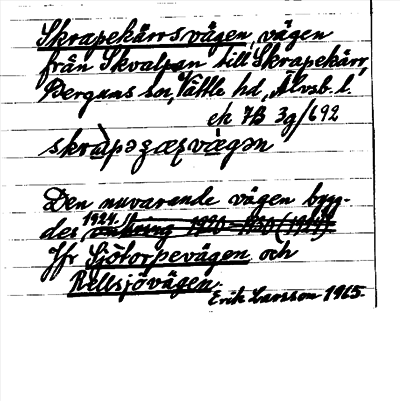 Skrapekärrsvägen, vägen
från Skvalpan till Skrapekärr,
Bergums sn, Vättle hd, Älvsb. l.
ek 7B 3g/692
skràpəʒæʀvä̀gən
Den nuvarande vägen byg-
des 1924. omkring 1920-1930 (1919).
Jfr Sjötorpevägen och
Rellsjövägen.
Erik Larsson 1965.